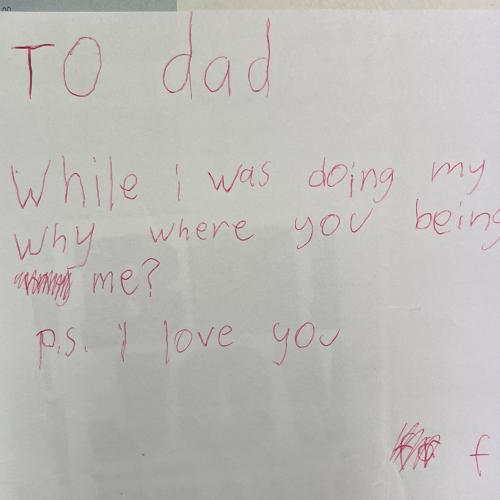 TO dad
While i was doing my
why where you being
me?
p.s. I love you
f